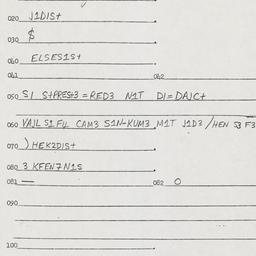 020 J1DIS+
030 $
040 ELSES1S+
041 042
050 S1 S+PRES+3=RED3 N1T DI=DAJC+
060 VAJL S1 FIL CAM3 S1N-KUM3, M1T J1D3 /HEN S3 F3
070 )HEK2DIS+
080 3 KFEN7N1S
081 — 082 0
090
100